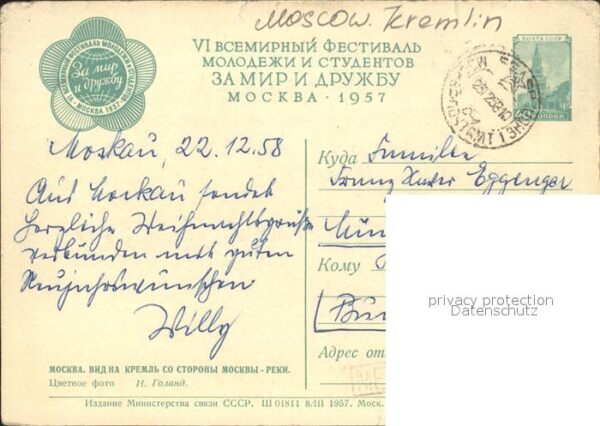 Moscow. Kremlin
VI ВСЕМИРНЫЙ ФЕСТИВАЛЬ МОЛОДЕЖИ И СТУДЕНТОВ
МОСКВА · 1957
За мир
и дружбу
VI ВСЕМИРНЫЙ ФЕСТИВАЛЬ
МОЛОДЕЖИ И СТУДЕНТОВ
ЗА МИР И ДРУЖБУ
МОСКВА · 1957
ПОЧТА СССР
Moskau, 22.12.58
Aus Moskau sendet
herzliche Weihnachtsgrüße
verbunden mit guten
Neujahrswünschen
Willy
Куда Familie
Franz Xaver Eggenger
Mün
Кому
Адрес от
privacy protection
Datenschutz
МОСКВА. ВИД НА КРЕМЛЬ СО СТОРОНЫ МОСКВЫ - РЕКИ.
Цветное фото И. Голанд.
Издание Министерства связи СССР. Ш 01811 8/III 1957. Моск.